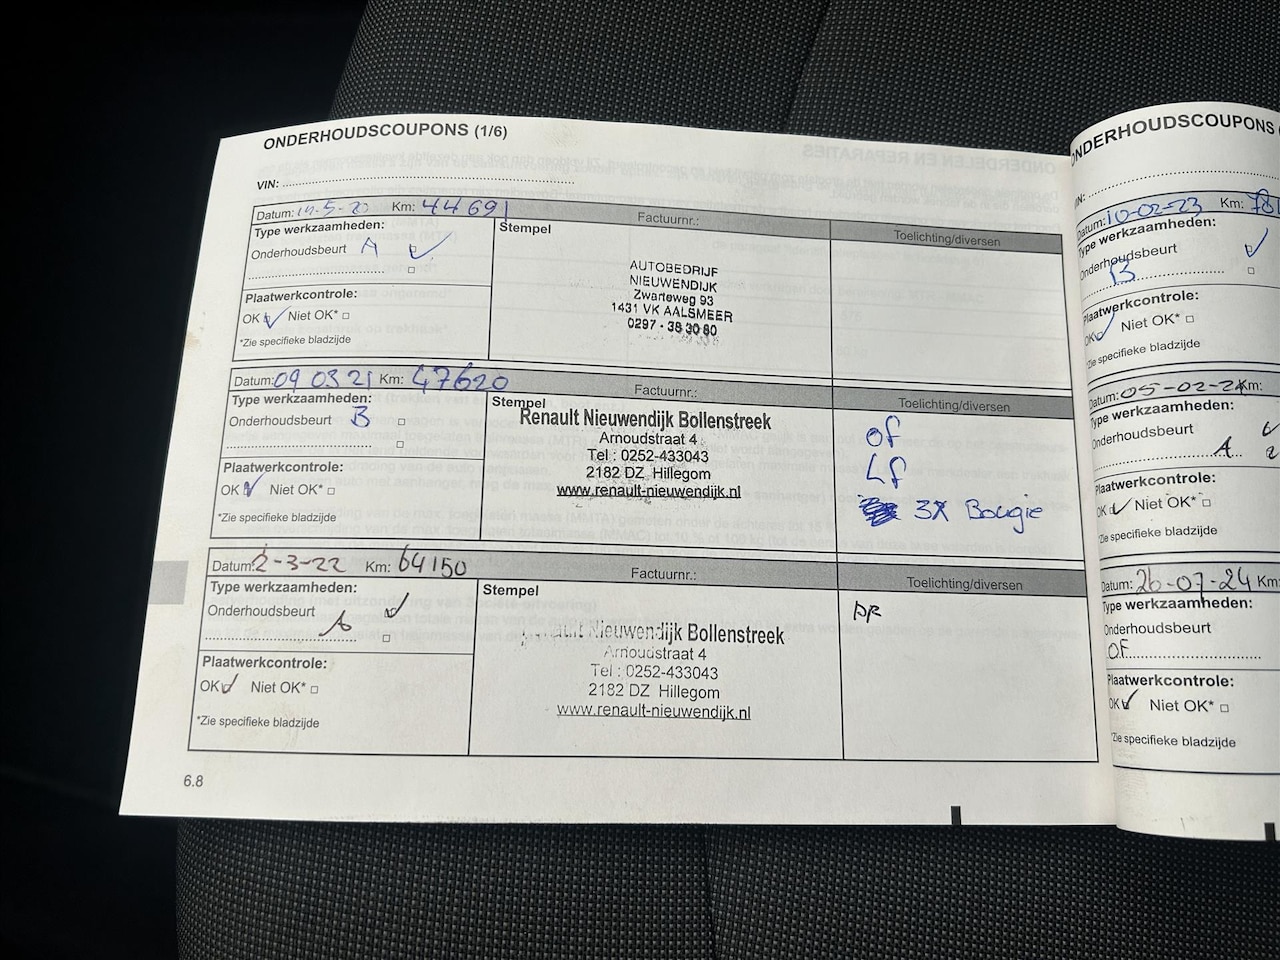 ONDERHOUDSCOUPONS (1/6)
VIN:
Datum: Km: 44691 Factuurnr.:
Type werkzaamheden: Stempel Toelichting/diversen
Onderhoudsbeurt A
AUTOBEDRIJF
NIEUWENDIJK
Zwarteweg 93
1431 VK AALSMEER
0297 - 38 30 80
Plaatwerkcontrole:
OK Niet OK*
*Zie specifieke bladzijde
Datum: 09 03 21 Km: 47620 Factuurnr.:
Type werkzaamheden: Stempel Toelichting/diversen
Onderhoudsbeurt B
Renault Nieuwendijk Bollenstreek
Arnoudstraat 4
Tel : 0252-433043
2182 DZ Hillegom
www.renault-nieuwendijk.nl
of
Lf
3x Bougie
Plaatwerkcontrole:
OK Niet OK*
*Zie specifieke bladzijde
Datum: 2-3-22 Km: 64150 Factuurnr.:
Type werkzaamheden: Stempel Toelichting/diversen
Onderhoudsbeurt
Nieuwendijk Bollenstreek
Arnoudstraat 4
Tel : 0252-433043
2182 DZ Hillegom
www.renault-nieuwendijk.nl
Plaatwerkcontrole:
OK Niet OK*
*Zie specifieke bladzijde
6.8
ONDERHOUDSCOUPONS
Datum: 10-02-23 Km:
Type werkzaamheden:
Onderhoudsbeurt
B
Plaatwerkcontrole:
OK Niet OK*
*Zie specifieke bladzijde
Datum: 05-02-24 Km:
Type werkzaamheden:
Onderhoudsbeurt
A
Plaatwerkcontrole:
OK Niet OK*
*Zie specifieke bladzijde
Datum: 26-07-24 Km:
Type werkzaamheden:
Onderhoudsbeurt
OF
Plaatwerkcontrole:
OK Niet OK*
*Zie specifieke bladzijde